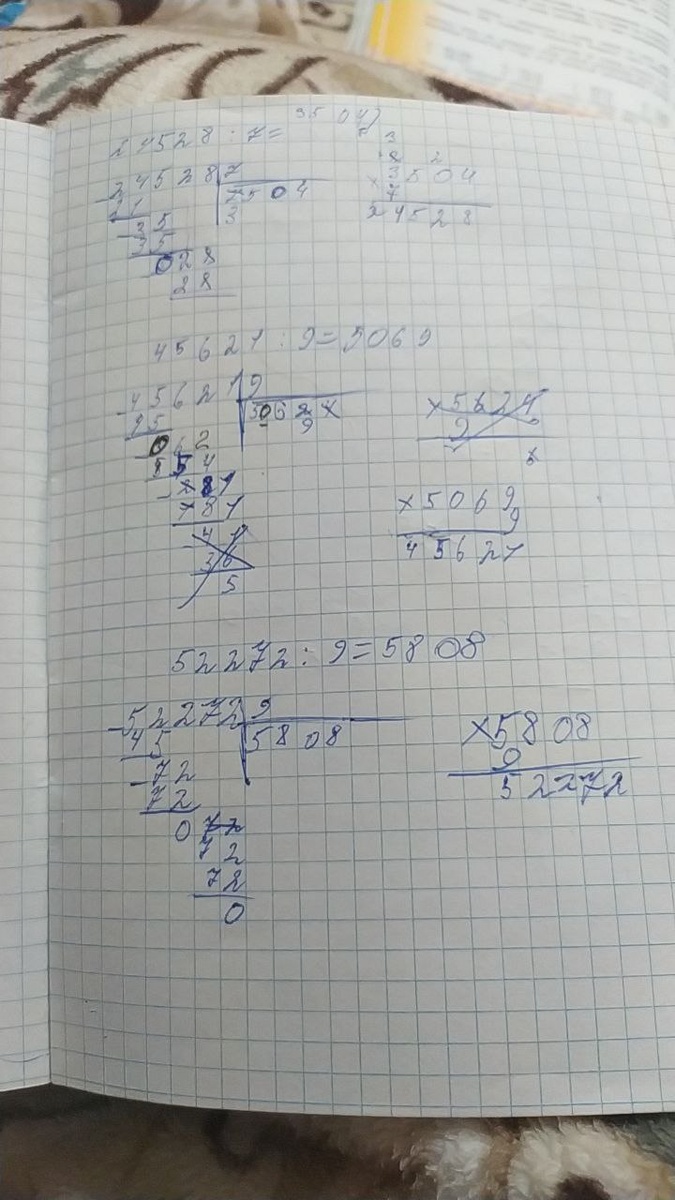 24528 : 7 = 3504
24528 7
21 7504
35 3
35
028
28
3
8 2
× 3504
7
24528
45621 : 9 = 5069
45621 9
45
062
54
81
781
41
36
5
× 5624
9
× 5069
9
45621
52272 : 9 = 5808
52272 9
45 5808
72
72
0 72
72
72
0
× 5808
9
52272